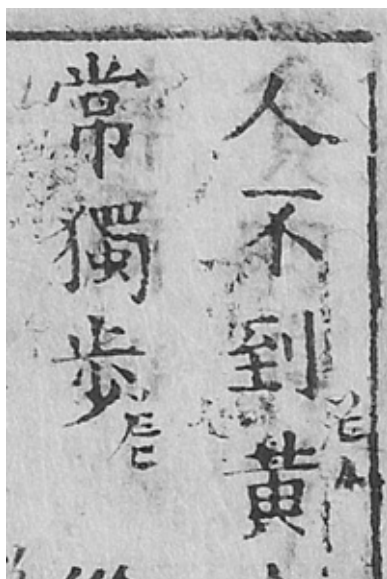 人不到黃
常獨步